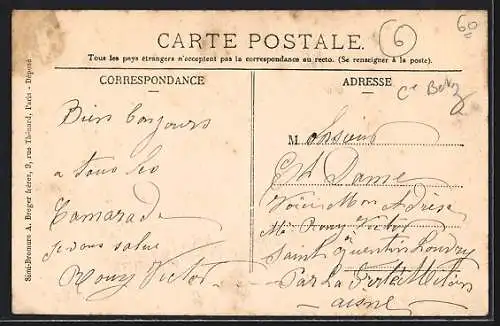 CARTE POSTALE.
6
60
Tous les pays étrangers n'acceptent pas la correspondance au recto. (Se renseigner à la poste).
CORRESPONDANCE
ADRESSE
Bien Bonjours
a tous les
Camarade
je vous salue
Rouy Victor
Monsieur
Dame
Voici Mon Adrese
Mr Rouy Victor
Saint Quentin Louvry
Par La Ferté Milon
aisne
Sémi-Bromure A. Breger frères, 9, rue Thénard, Paris - Déposé